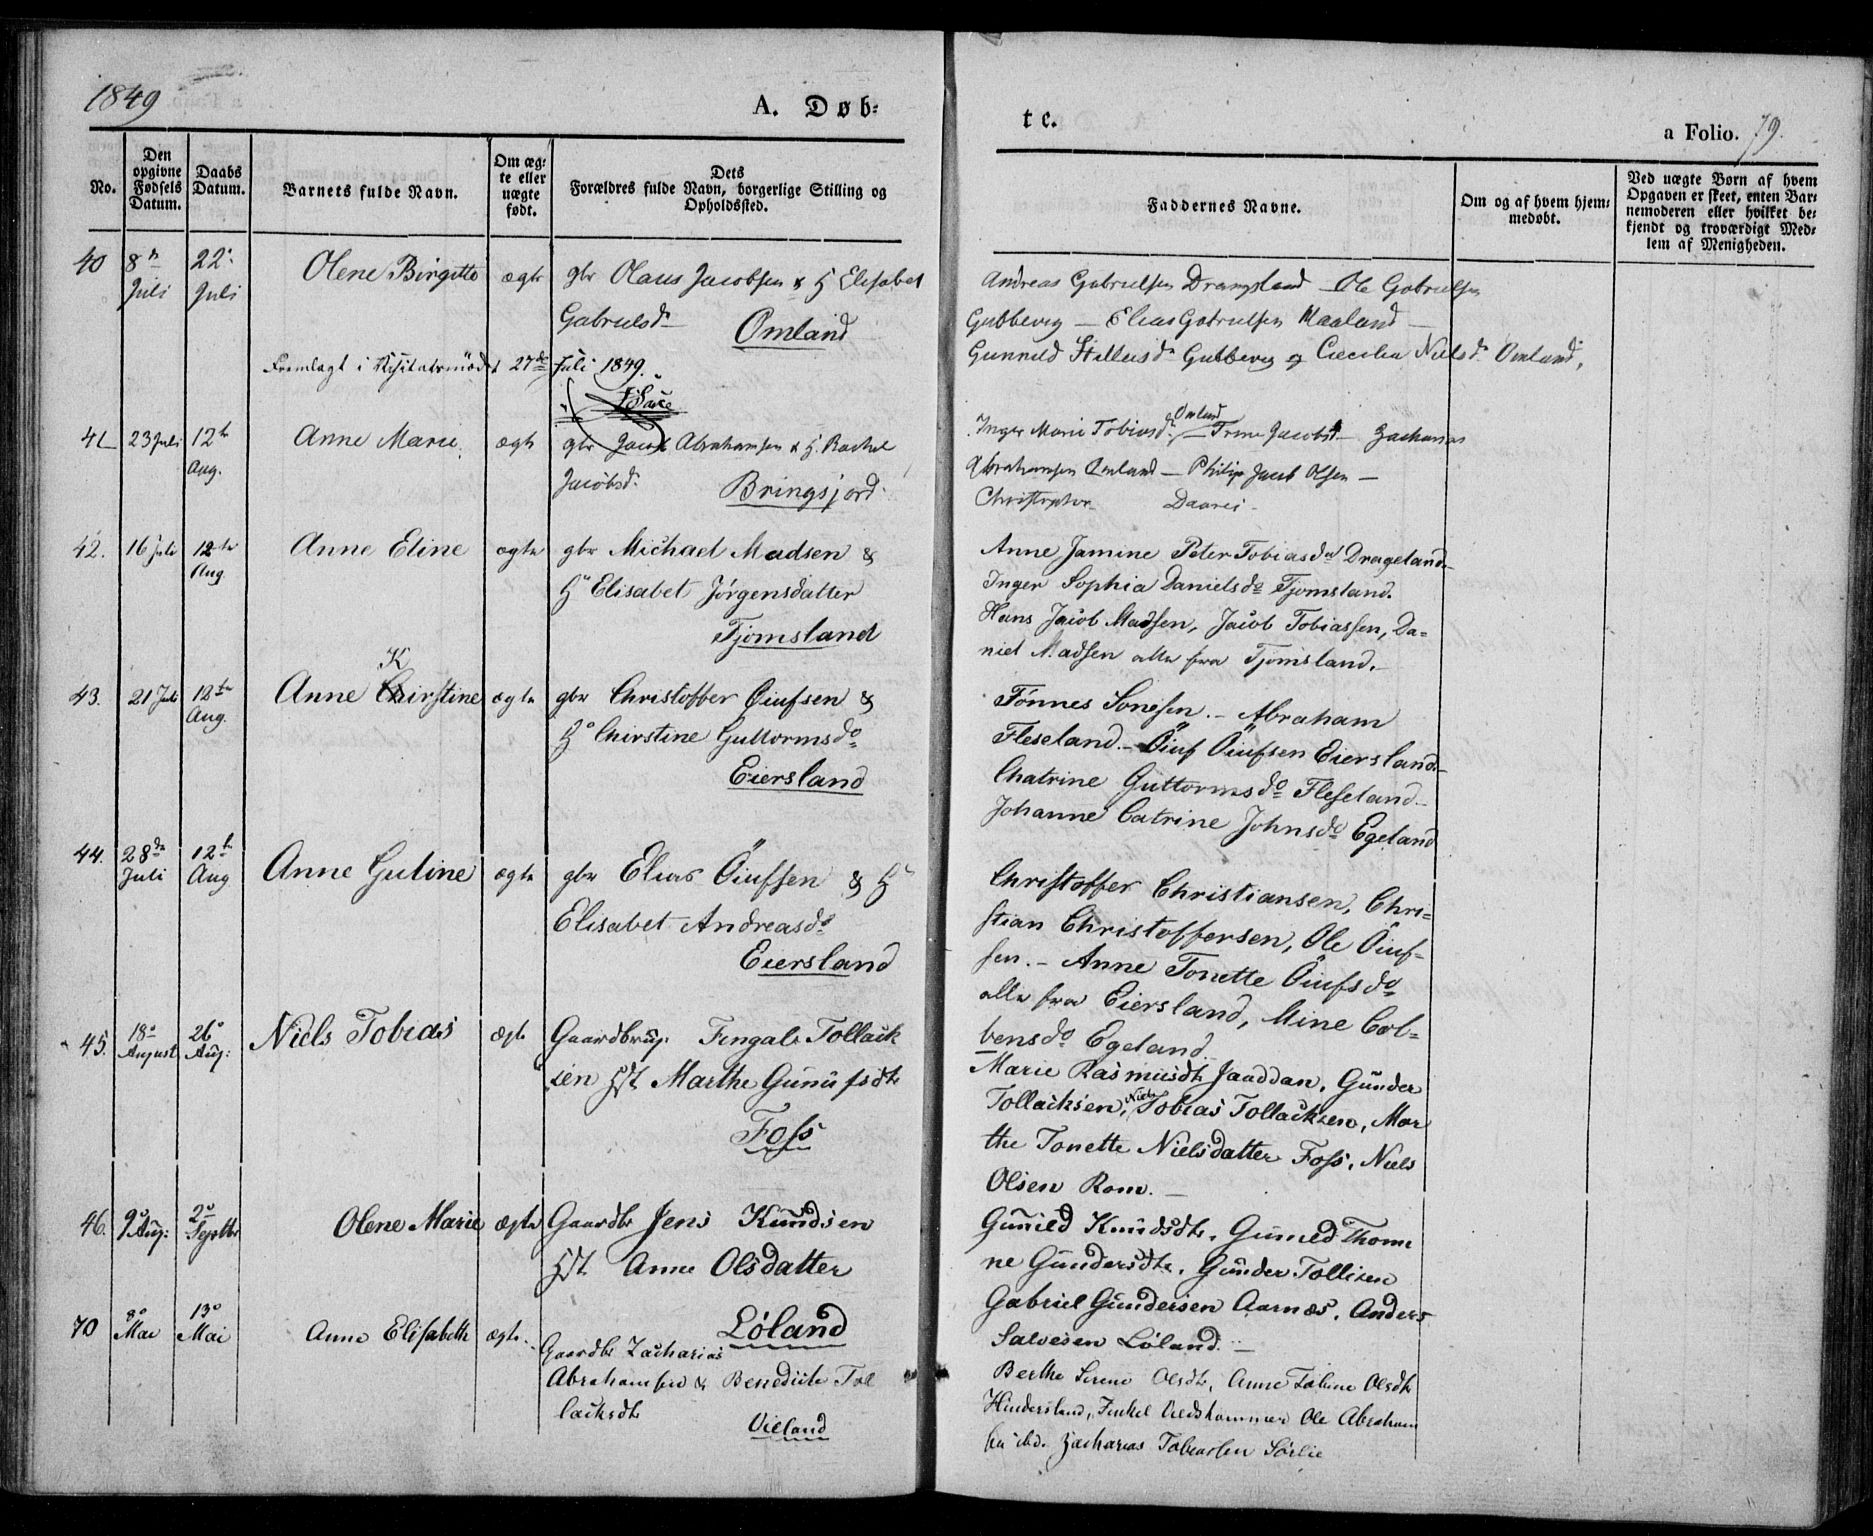 1849
A. Døb-
No.
Den opgivne Fødsels Datum.
Daabs Datum.
Barnets fulde Navn.
Om ægte eller uægte født.
Dets Forældres fulde Navn, borgerlige Stilling og Opholdssted.
40 8de Juli 22 Juli Olene Birgitte ægte gbr Olaus Jacobsen & H Elisabet
Gabrielsd.
Omland
Fremlagt i Visitatsmødet 27de Juli 1849.
41 23 Juli 12te Aug. Anne Marie ægte gbr Jacob Abrahamsen & H. Rachel
Jacobsd.
Bringsjord
42. 16 Juli 12te Aug Anne Eline ægte gbr Michael Madsen &
H Elisabet Jørgensdatter
Tjomsland
43. 21 Juli 12te Aug. Anne K Chirstine ægte gbr Christoffer Öiufsen &
H Chirstine Guttormsd.
Eiersland
44. 28de Juli 12te Aug Anne Guline ægte gbr Elias Öiufsen & H
Elisabet Andreasd.
Eiersland
45. 18 August 26 Aug: Niels Tobias ægte Gaardbrug. Fingals Tollack
sen Hst Marthe Gunufsdt
Foss
46. 9 Aug: 2 Septbr Olene Marie ægte Gaardbr Jens Knudsen
Hst Anne Olsdatter
Løland
70 8 Mai 13 Mai Anne Elisabeth ægte Gaardbr Zacharias
Abrahamsen & Benedicte Tol
lacksdt
Vieland
te.
a Folio. 79.
Faddernes Navne.
Om og af hvem hjemmedøbt.
Ved uægte Børn af hvem Opgaven er skeet, enten Barnemoderen eller hvilket bekjendt og troværdigt Medlem af Menigheden.
Andreas Gabrielsen Drangsland – Ole Gabrielsen
Gubbevig – Elias Gabrielsen Maaland –
Gunnild Gubbevig og Cæcilia Nielsd. Omland,
Inger Marie Tobiasd. Omland – Trine Jacobsd – Zacharias
Abrahamsen Omland – Philip Jacob Olsen –
Christopher
Anne Jamine Peter Tobiasd. Drageland.
Inger Sophia Danielsd. Tjomsland.
Hans Jacob Madsen, Jacob Tobiassen, Da-
niel Madsen alle fra Tjomsland.
Tønnes Sonesen. – Abraham
Fleseland. – Öiuf Öiufsen Eiersland.
Chatrine Guttormsd. Fleseland.
Johanne Catrine Johnsd. Egeland
Christoffer Christiansen, Chri-
stian Christoffersen, Ole Öiuf-
sen. – Anne Tonette Öiufsd.
alle fra Eiersland, Mine Col-
bensd. Egeland.
Marie Rasmusdt Jaaddan, Gunder
Tollacksen, Niels Tobias Tollacksen, Mar
the Tonette Nielsdatter Foss, Niels
Olsen Rom. –
Gunild Knudsdt, Gunild Thom
ne Gundersdt, Gunder Tollisen
Gabriel Gundersen Aarnæs, Anders
Salvesen Løland. –
Berthe Serene Olsdt, Anne Taline Olsdt
Hindersland, Ole Abraham
sen ibd. Zacharias Tobiassen Sørlie